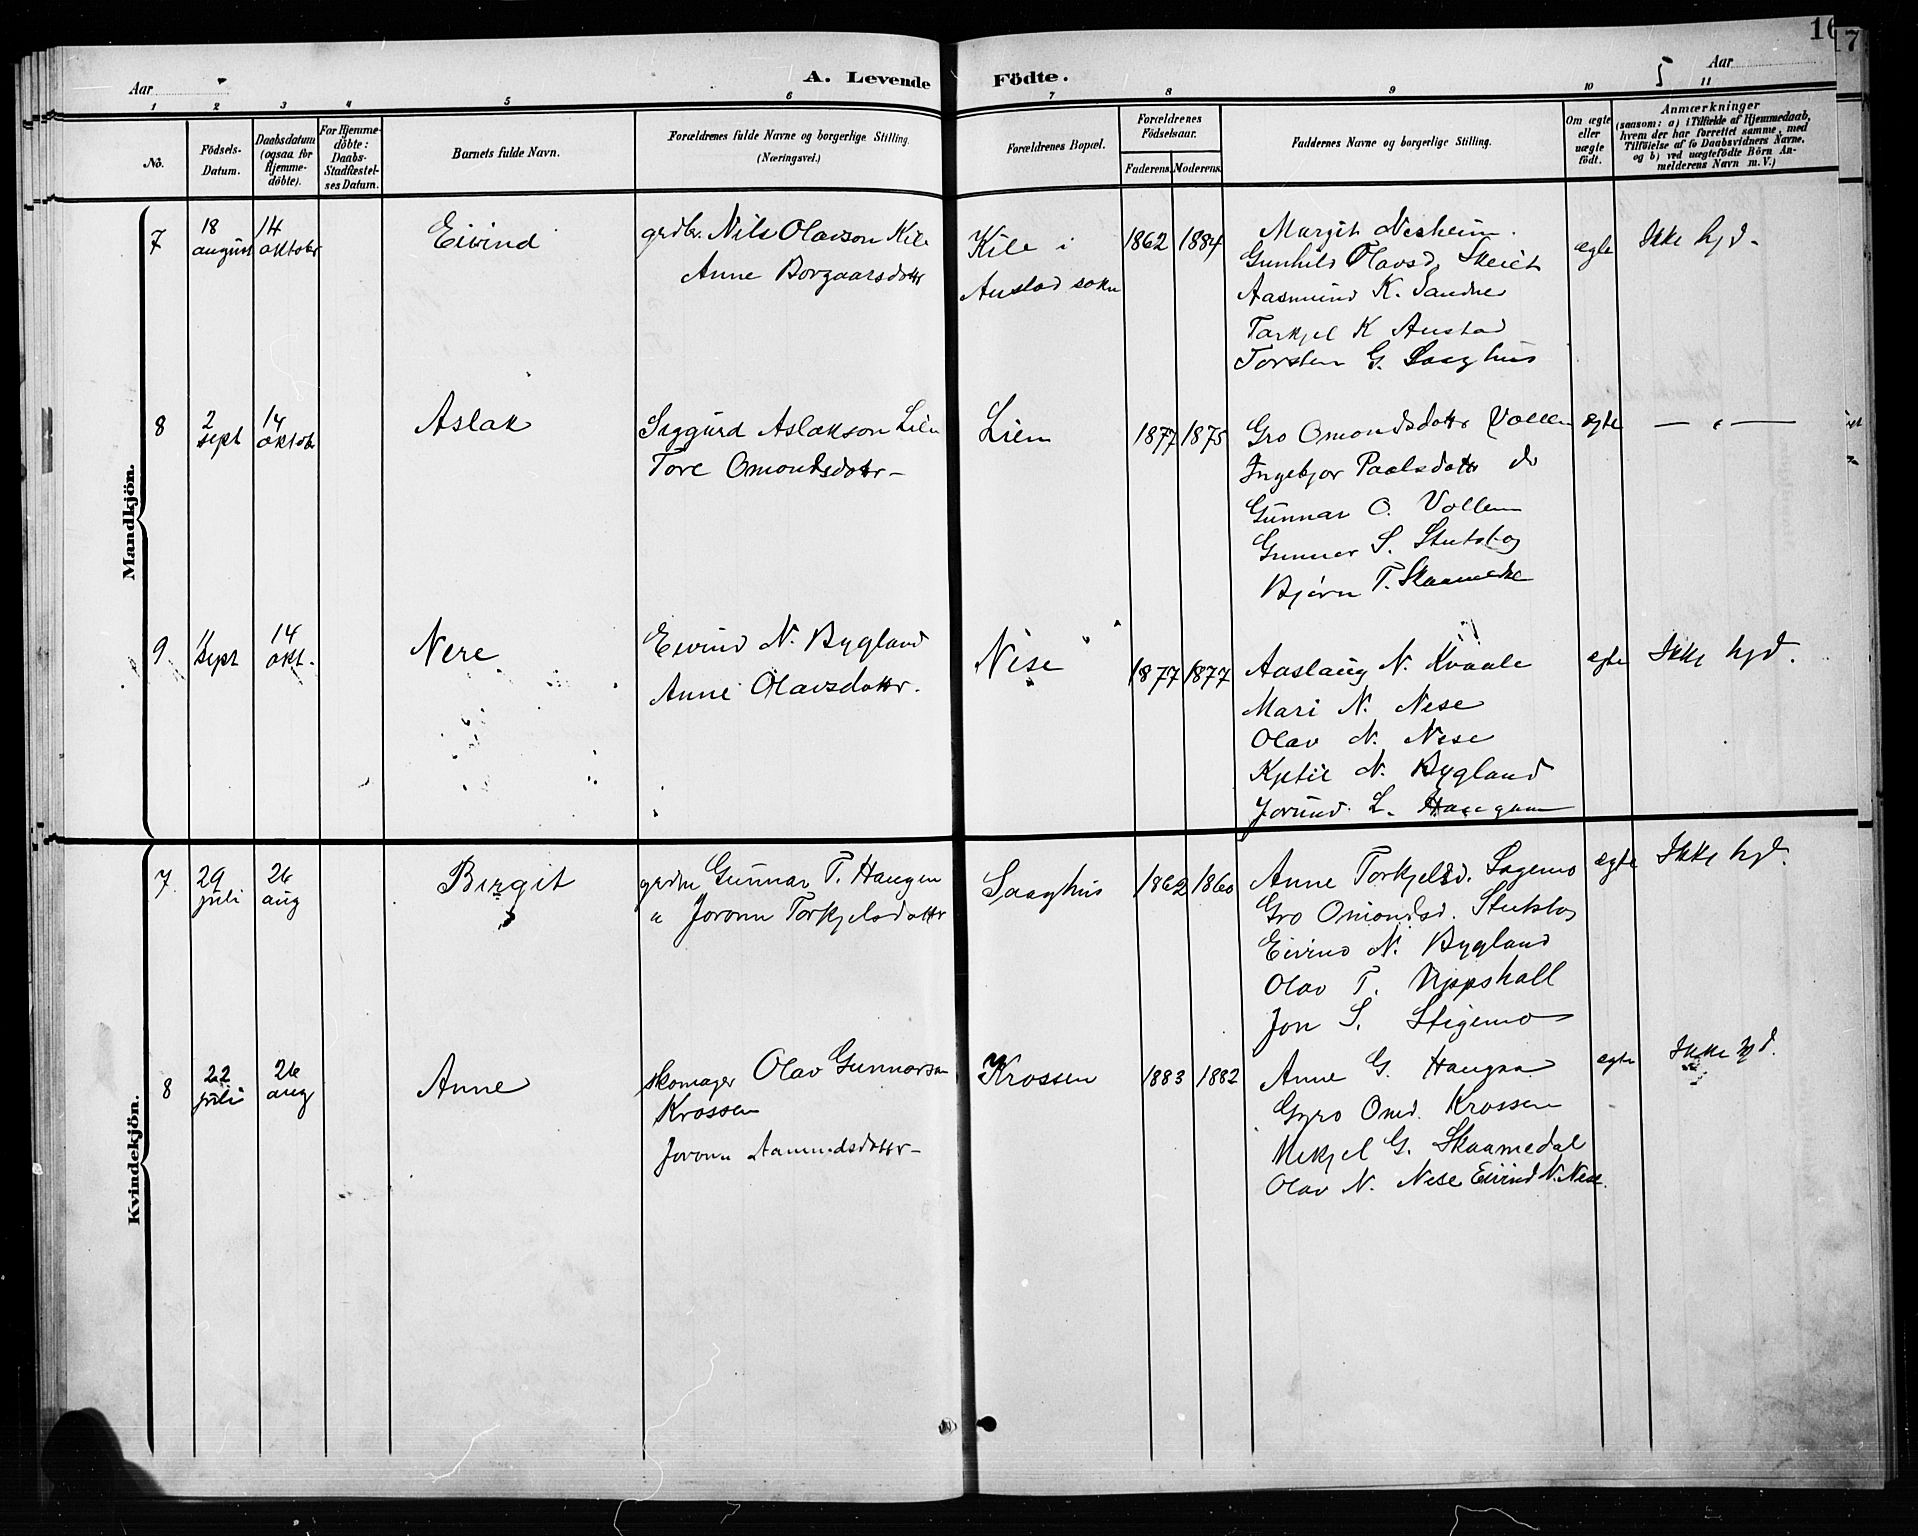 16
17
Aar
A. Levende Födte.
5
Aar
1 2 3 4 5 6 7 8 9 10 11
No.
Födsels-
Datum.
Daabsdatum
(ogsaa for
Hjemme-
döbte).
For Hjemme-
döbte:
Daabs-
Stadfæstel-
ses Datum.
Barnets fulde Navn.
Forældrenes fulde Navne og borgerlige Stilling.
(Næringsvei.)
Forældrenes Bopæl.
Forældrenes
Födselsaar.
Faderens.
Moderens.
Faddernes Navne og borgerlige Stilling.
Om ægte
eller
uægte
födt.
Anmærkninger
(saasom: a) i Tilfælde af Hjemmedaab,
hvem der har forrettet samme, med
Tilföielse af to Daabsvidners Navne,
og b) ved uægtefödte Börn An-
melderens Navn m. V.)
Mandkjön.
7
18
august
14
oktober
Eivind
grdbr. Nils Olavson Kile
Anne Borgaarsdottr
Kile i
Austad sokn
1862
1884
Margit Nesheim.
Gunhild Olavsd. Skeie
Aasmund K. Sandnes
Torkjel K Austad
Torsten G. Saaghus
ægte
Ikke hjd.
8
2
sept
14
oktober
Aslak
Siggurd Aslakson Lien
Tore Omondsdottr –
Lien
1877
1875
Gro Omondsdottr Vollen
Ingebjor Paalsdottr do
Gunnar O. Vollen
Gunnar S. Stutstog
Bjørn T. Skaamedal
ægte
— „ —
9
11
sept
14
okt.
Nere
Eivind N. Bygland
Anne Olavsdottr.
Nese
1877
1877
Aaslaug N. Kvaale
Mari N. Nese
Olav N. Nese
Kjetil N. Bygland
Jorund L. Haugaa
ægte
Ikke hjd.
Kvindekjön.
7
29
juli
26
aug
Birgit
grdm Gunnar T. Haugen
u Joronn Torkjelsdottr
Saaghus
1862
1860
Anne Torkjelsd. Sagemo
Gro Omondsd. Stutstog
Eivind N. Bygland
Olav T. Uppstall
Jon S. Stigemo
ægte
Ikke hjd.
8
22
juli
26
aug
Anne
skomager Olav Gunnarson
Krossen
Joronn Aamundsdottr –
Krossen
1883
1882
Anne G. Haugaa
Gyro Omd. Krossen
Mikjel G. Skaamedal
Olav N. Nese Eivind N. Nese.
ægte
Ikke hjd.